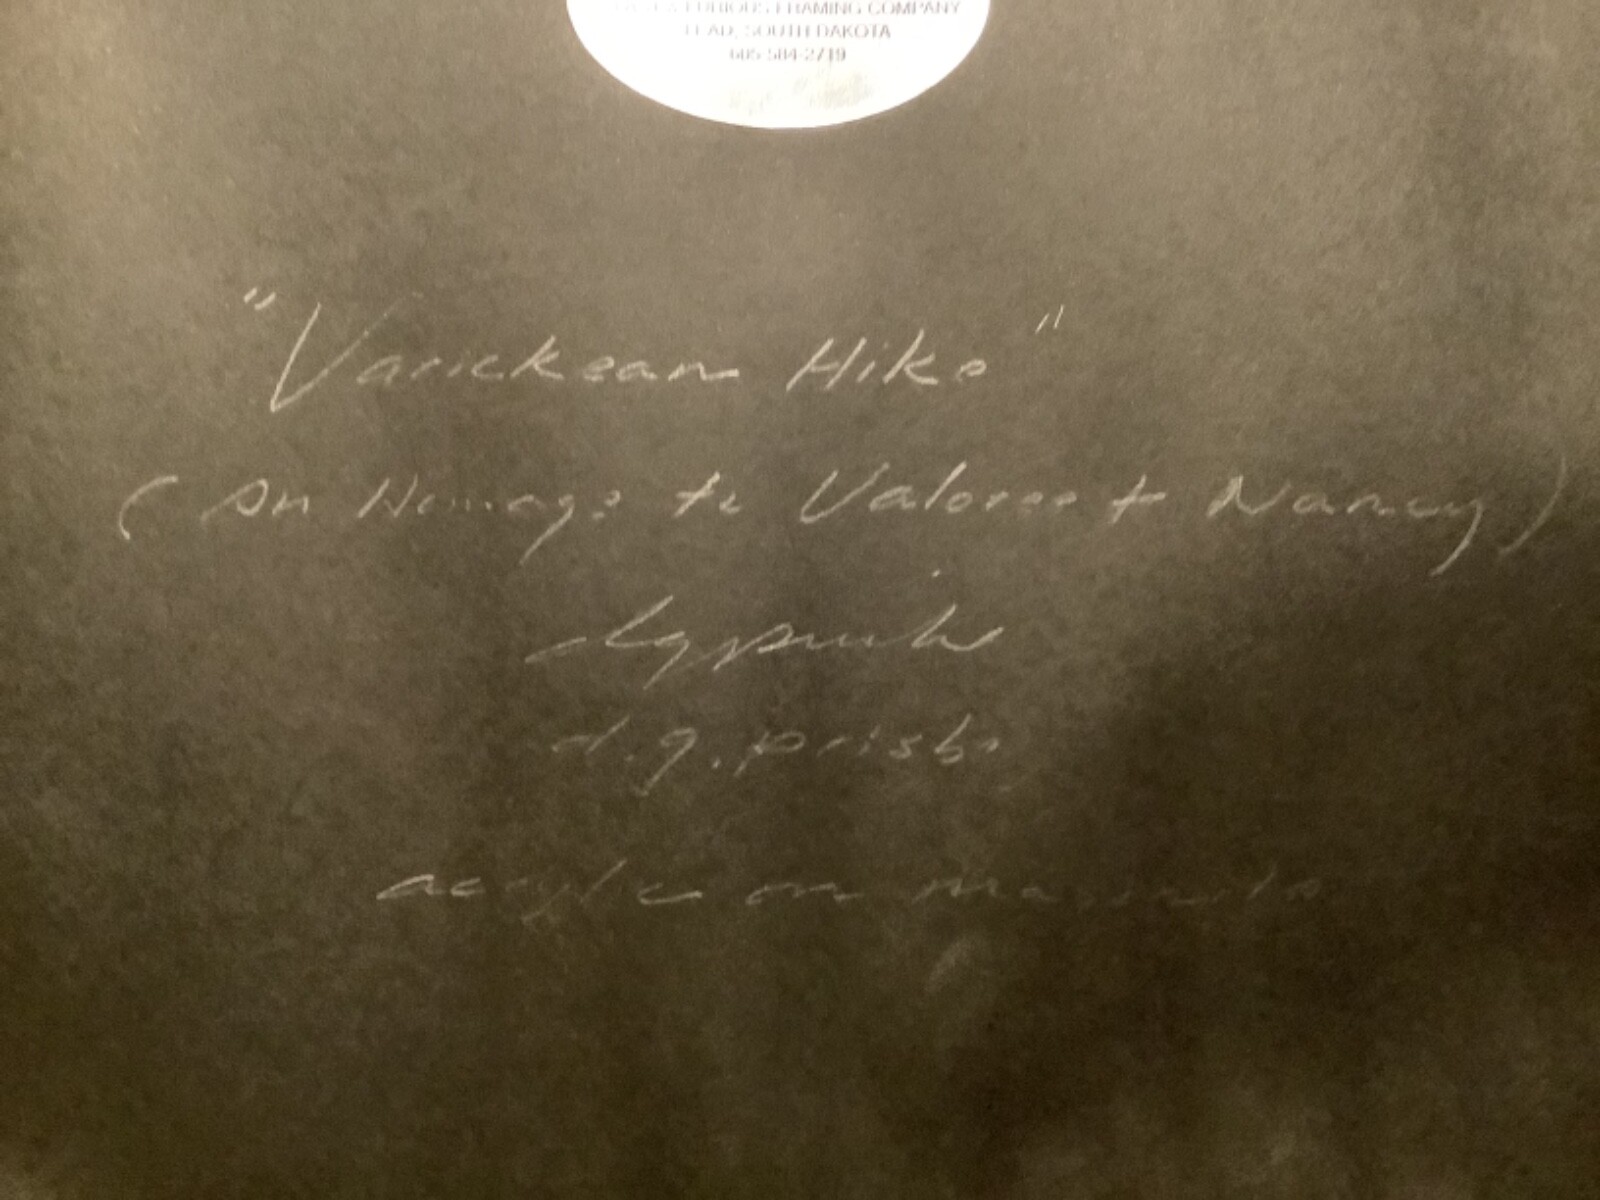 FRAMING COMPANY
LEAD, SOUTH DAKOTA
605-584-2719
"Varickean Hike"
(An Homage to Valoree + Nancy)
d.g. prisb
acrylic on masonite